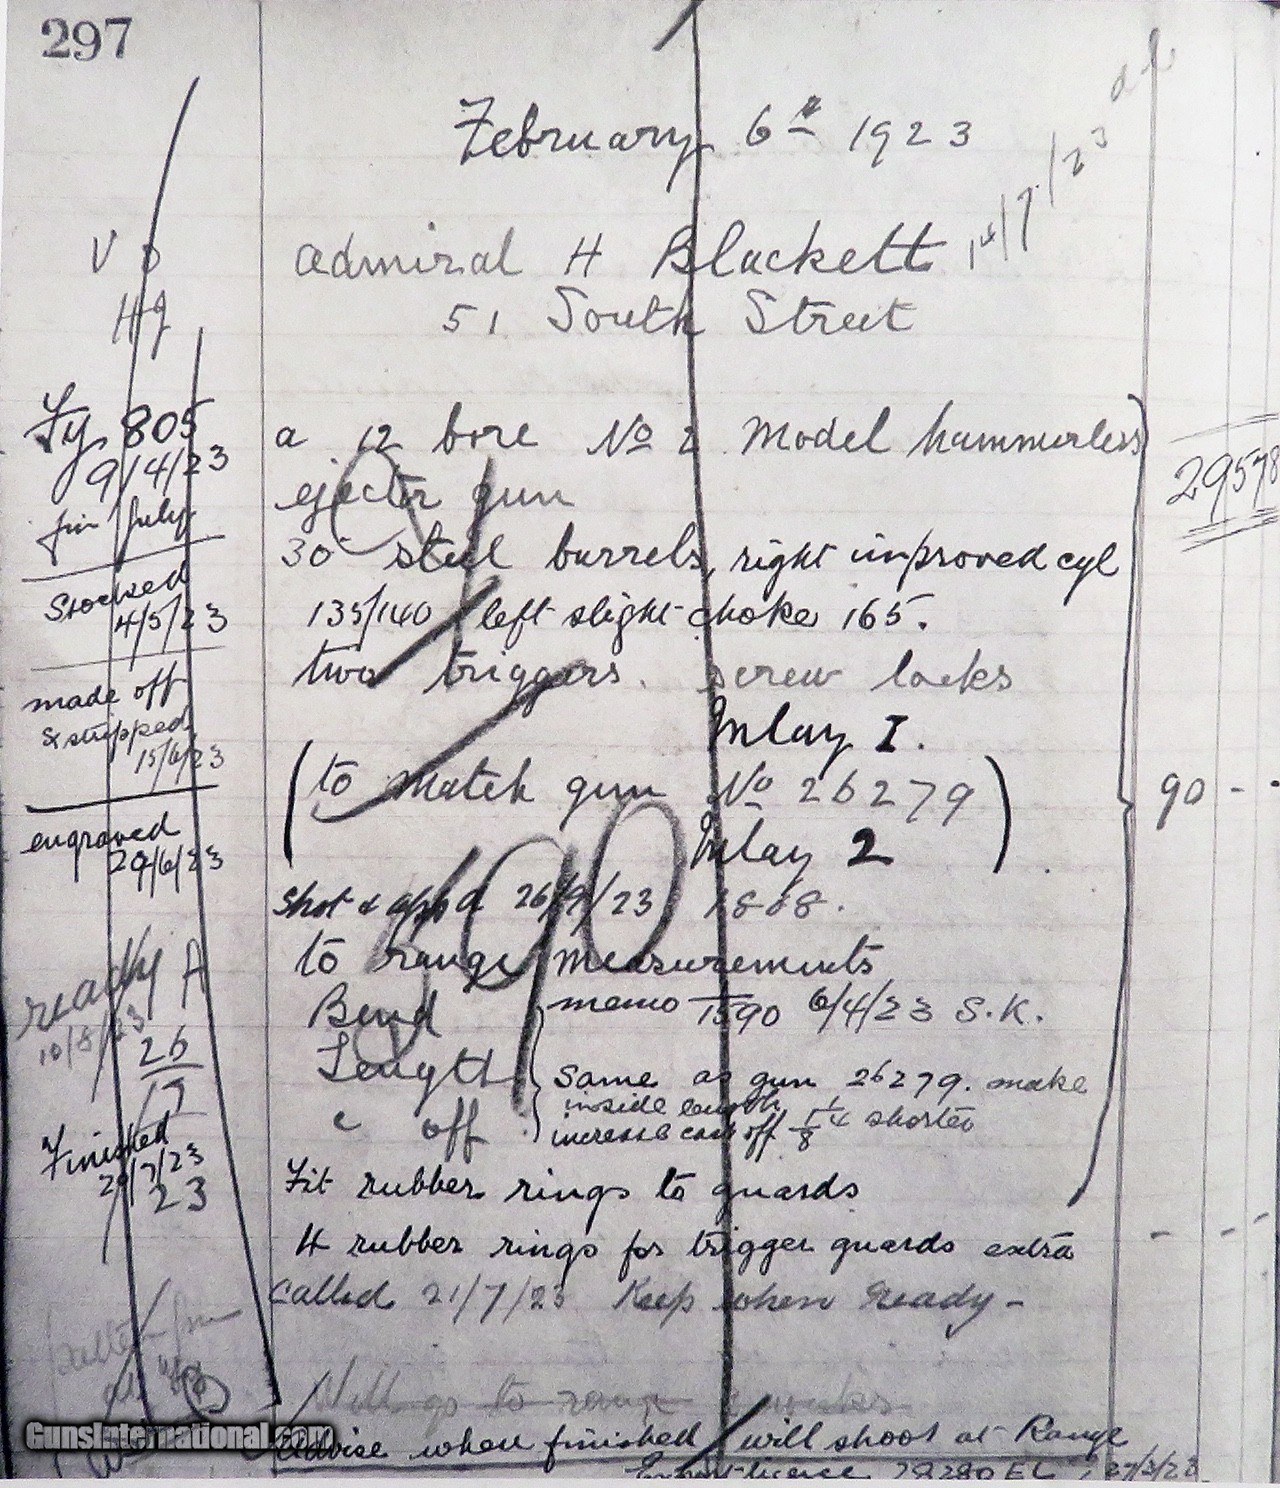 297
February 6th 1923
Admiral H Blackett 14/7/23
51 South Street
V
Hg
Fy 805
9/4/23
fin July
Stocked
4/5/23
made off
& stripped
15/6/23
engraved
29/6/23
ready A
10/8/23
26
17
Finished
23
a 12 bore No 2 Model hammerless
ejector gun
29578
30" steel barrels, right improved cyl
135/140 left slight choke 165.
two triggers. screw locks
Inlay I.
(to match gun No 26279)
90 - -
Inlay 2
Shot & appd 26/9/23 1808.
to range measurements
Bend memo 1590 6/4/23 S.K.
Length same as gun 26279. make
inside length 1/4 shorter
" off increase cast off 1/8
Fit rubber rings to guards
4 rubber rings for trigger guards extra - - -
Called 21/7/23 Keep when ready -
Will go to range
Advise when finished will shoot at Range
27/3/23
GunsInternational.com
90